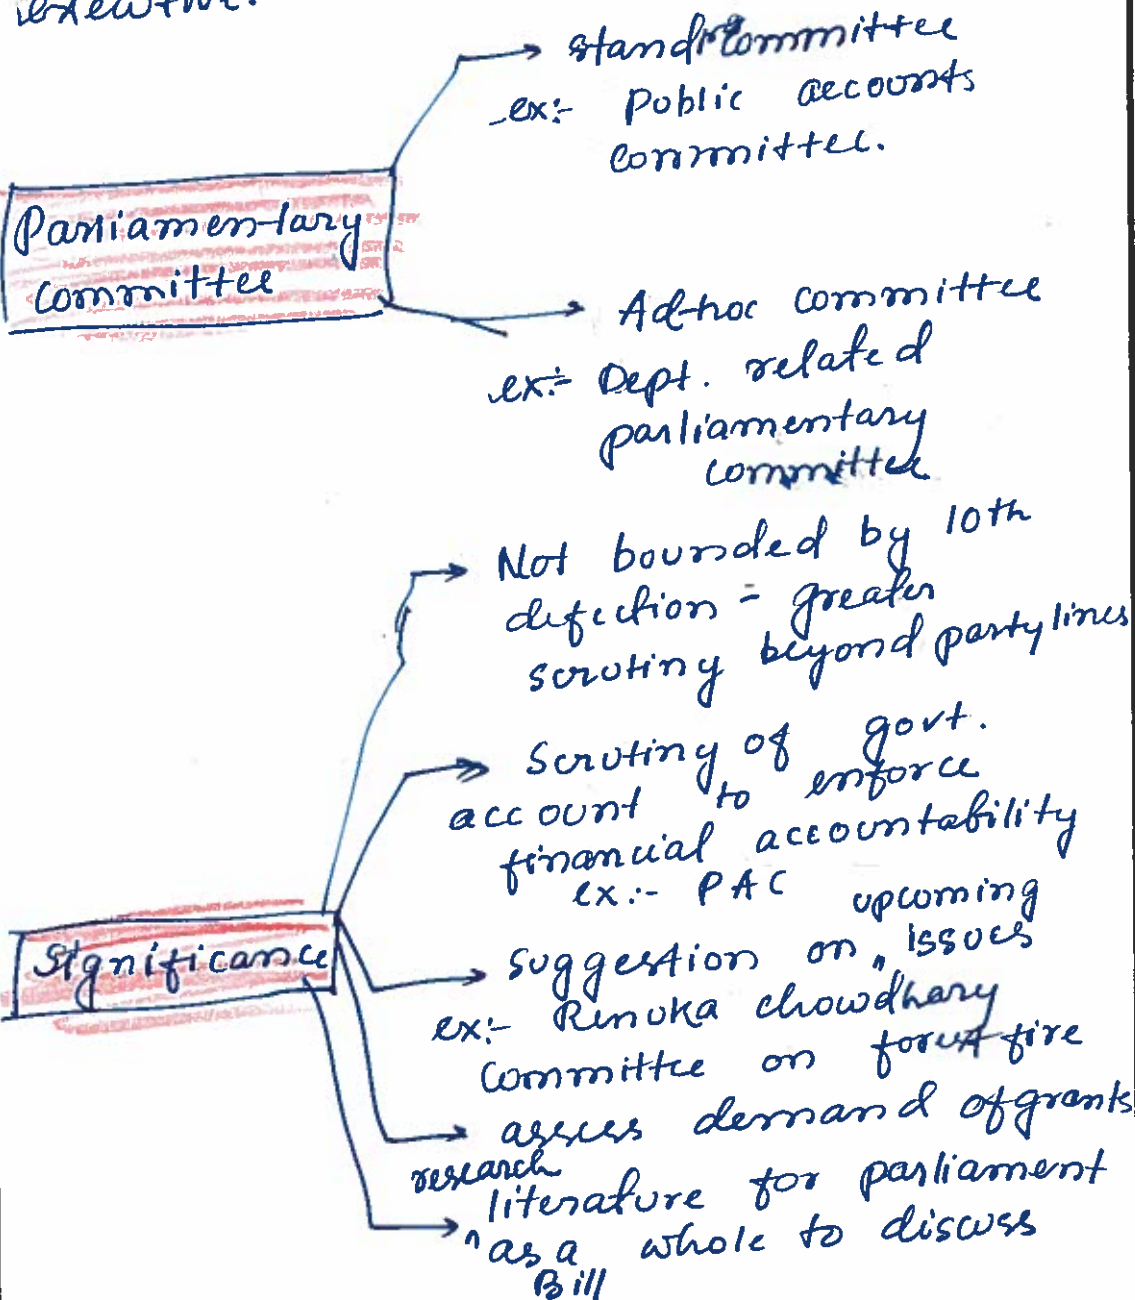 standing committee
ex:- Public accounts
committee.
Parliamentary
committee
Ad-hoc committee
ex:- Dept. related
parliamentary
committee
Not bounded by 10th
defection - greater
scrutiny beyond party lines
Scrutiny of govt.
account to enforce
financial accountability
ex:- PAC
Significance
suggestion on upcoming issues
ex:- Renuka chowdhary
committee on forest fire
assess demand of grants
research literature for parliament
as a whole to discuss
Bill